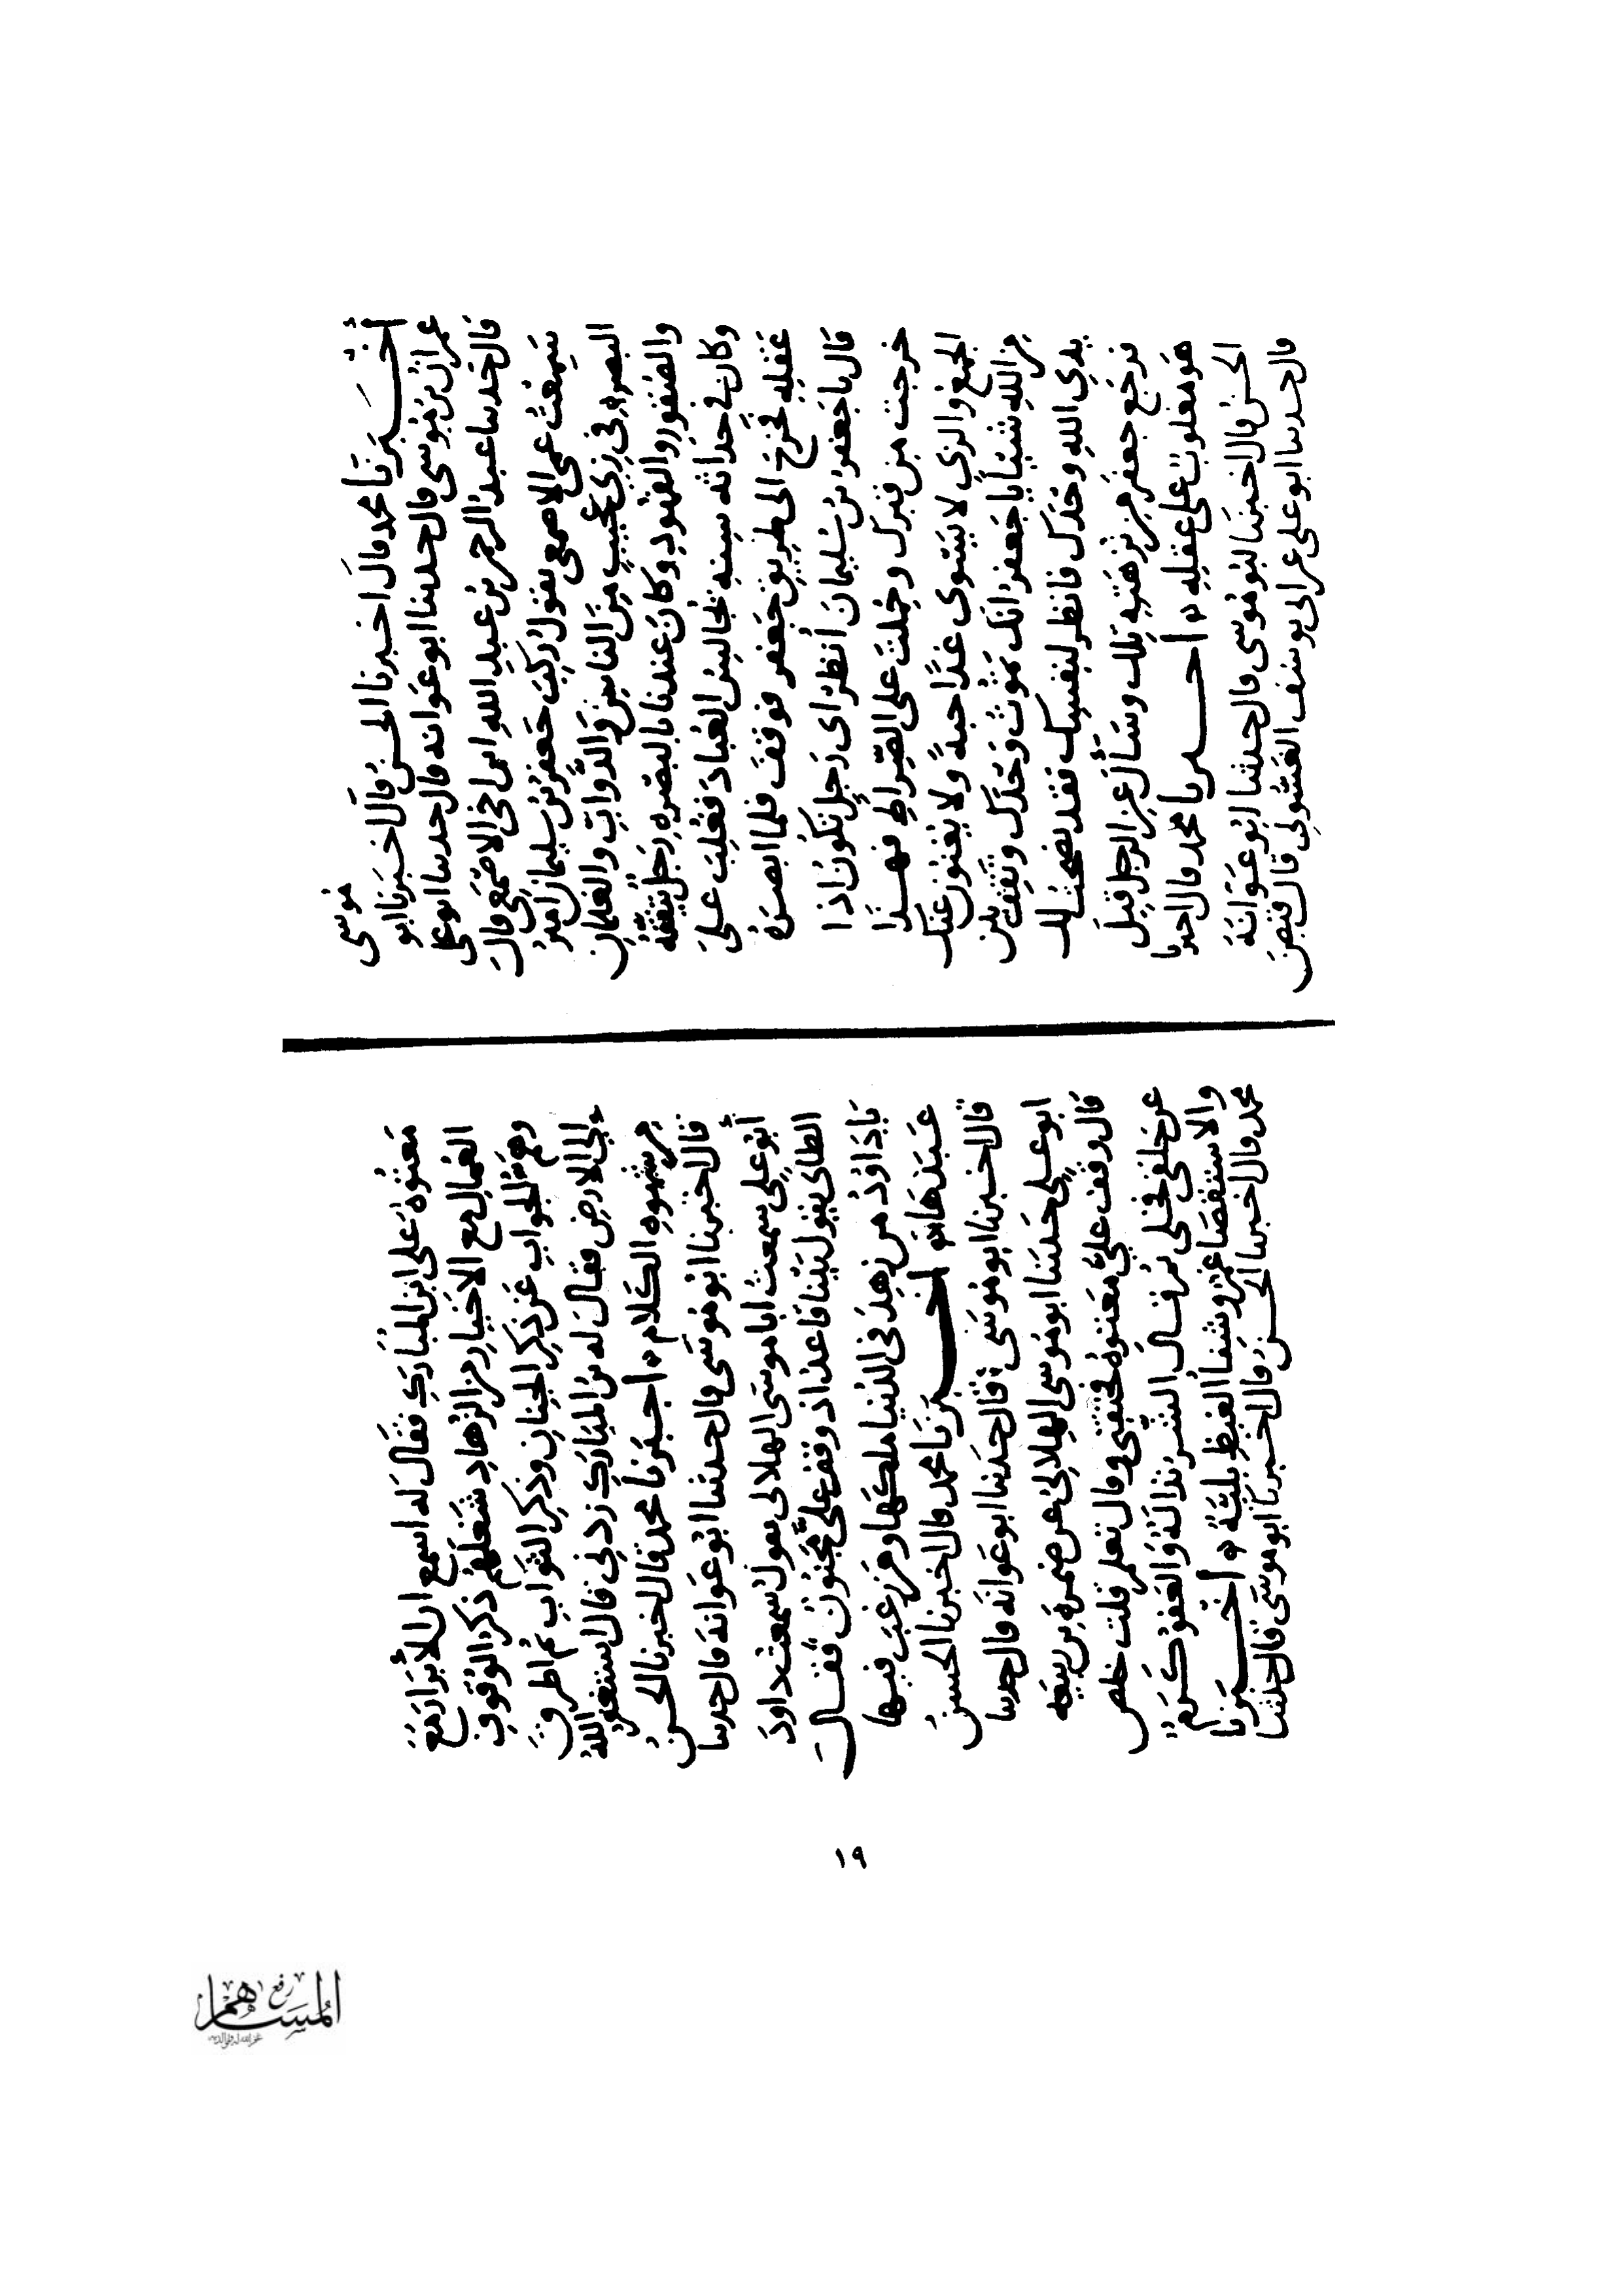 أخبرنا محمد قال اخبرنا الحسن قال اخبرنا ابو موسى
عمران بن موسى قال حدثنا ابو عوانه قال حدثنا ابو علي
قال حدثنا عبد الرحمن بن عبد الله ابن اخي الاصمعي قال
سمعت عمي الاصمعي يقول ركب جعفر بن سليمان امير
البصره في زي عجيب من الناس والدواب والغلمان
والصقور والفهود وكان عندنا بالبصره رجل يتفقه
وكان في حداثه سنه يجالس العباد فغلب على
عقله فخرج الى طريق جعفر فوقف فلما ابصره
قال يا جعفر بن سليمان أنظر اي رجل تكون اذا
خرجت من قبرك وحملت على الصراط فهذا
الجمع والزي لا يسوى غدا حبة ولا يغنون عنك
من الله شيئا يا جعفر انك تموت وحدك وتقف بين
يدي الله وحدك فانظر لنفسك فقد نصحت لك
فرجع جعفر من نزهته تلك وسأل عن الرجل قيل
هو مغلوب على عقله أخبرنا محمد قال اخبرنا
الحسن قال اخبرنا ابو موسى قال حدثنا ابو عوانة
قال حدثنا ابو علي عن ابي يوسف الغسولي قال قبض
معتوه على ابن المبارك فقال له اسمع ان الأبرار مع
العمال مع الاخيار من الزهاد شغلهم ذكر الوقوف
وهم الجواب عن ذكر الجنان وذكر الثواب ثم اطرق
إلى الارض فقال له بن المبارك زدني قال استغفر الله
من شهوه الكلام أخبرنا محمد قال اخبرنا الحسن
قال اخبرنا ابو موسى قال حدثنا ابو عوانة قال حدثنا
أبو علي سمعت ابا موسى الهلالي يقول سمعت داود
الطائي يقول بينا قاعد اذ وقف علي مجنون فقال
يا داؤد من زهد في الدنيا ملكها ومن رغب فيها
عبدها أخبرنا محمد قال اخبرنا الحسن
قال اخبرنا ابو موسى قال حدثنا ابو عوانه قال حدثنا
ابو علي حدثنا ابو موسى الهلالي عن ضمره بن ربيعه
قال وقف علي معتوه فخنقني وقال تعلم قلت خلص
عن حلقي فخلى ثم قال الشر نذالة والعفو كرم
والاستقصا غم وشفا الغيظ بلية أخبرنا
محمد قال اخبرنا الحسن قال اخبرنا ابو موسى قال حدثنا
١٩
المساهم
رفع
غفر الله له ولوالديه